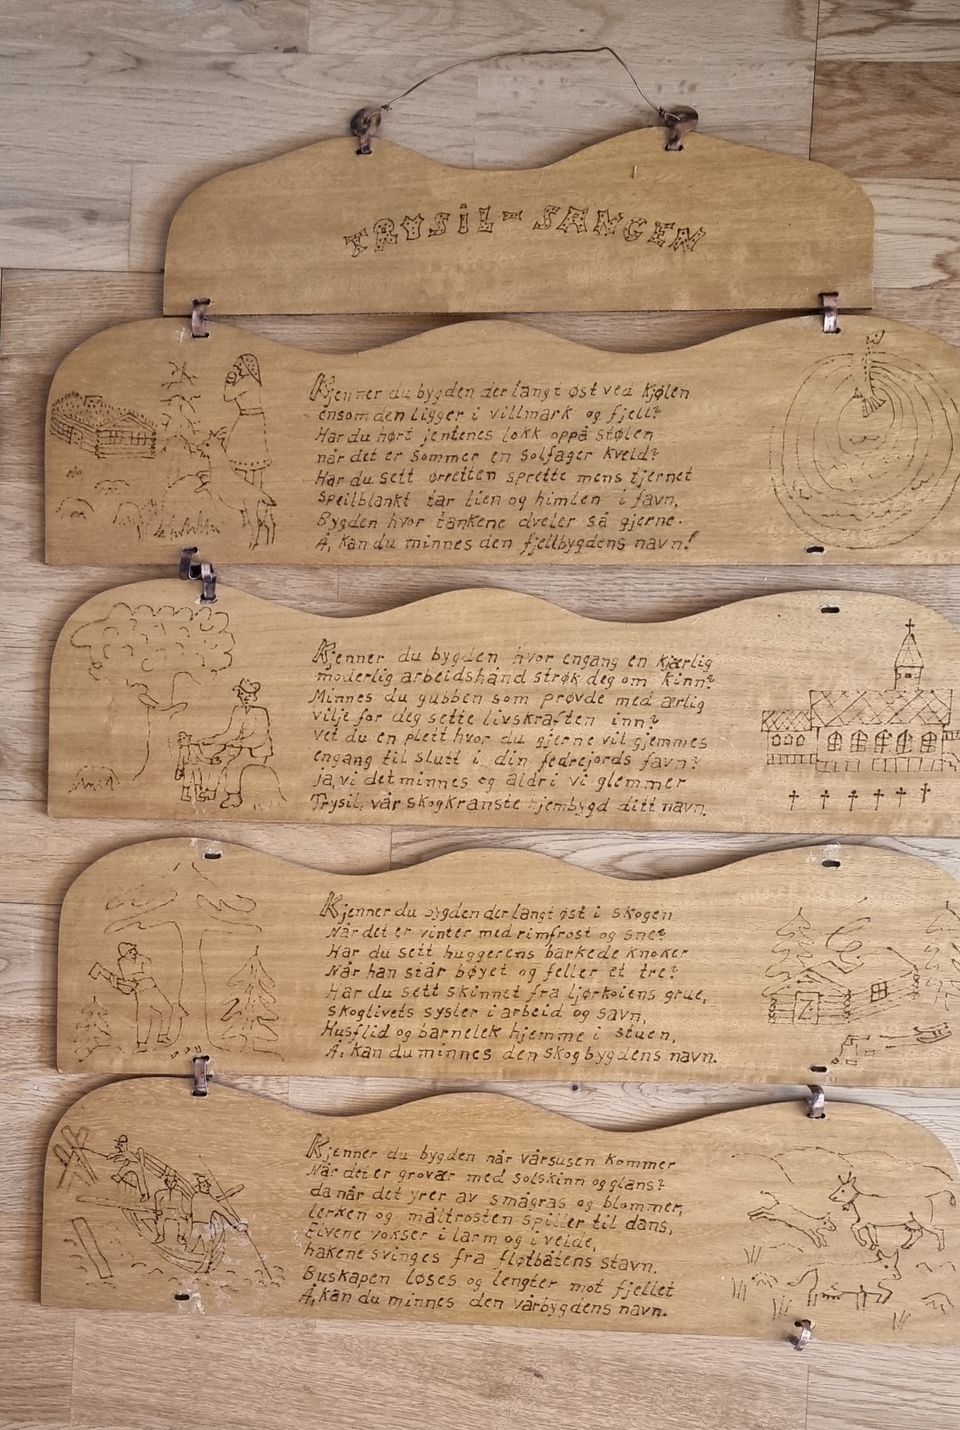 TRYSIL-SANGEN
Kjenner du bygden der langt øst ved Kjølen
ensom den ligger i villmark og fjell?
Har du hørt jentenes lokk oppå stølen
når det er sommer en solfager kveld?
Har du sett ørretten sprette mens tjernet
speilblankt tar lien og himlen i favn,
Bygden hvor tankene dveler så gjerne.
Å, kan du minnes den fjellbygdens navn!
Kjenner du bygden hvor engang en kjærlig
moderlig arbeidshånd strøk deg om kinn?
Minnes du gubben som prøvde med ærlig
vilje for deg sette livskraften inn?
vet du en plett hvor du gjerne vil gjemmes
engang til slutt i din fedrejords favn?
ja, vi det minnes og aldri vi glemmer
Trysil, vår skogkranste hjembygd ditt navn.
Kjenner du bygden der langt øst i skogen
Når det er vinter med rimfrost og sne?
Har du sett huggerens barkede knoker
Når han står bøyet og feller et tre?
Har du sett skinnet fra ljørkoiens grue,
skoglivets sysler i arbeid og savn,
Husflid og barnelek hjemme i stuen,
Å, kan du minnes den skogbygdens navn.
Kjenner du bygden når vårsusen kommer
Når det er grovær med solskinn og glans?
da når det yrer av smågras og blommer,
lerken og måltrosten spiller til dans,
Elvene vokser i larm og i velde,
hakene svinges fra fløtbåtens stavn.
Buskapen løses og lengter mot fjellet
Å, kan du minnes den vårbygdens navn.